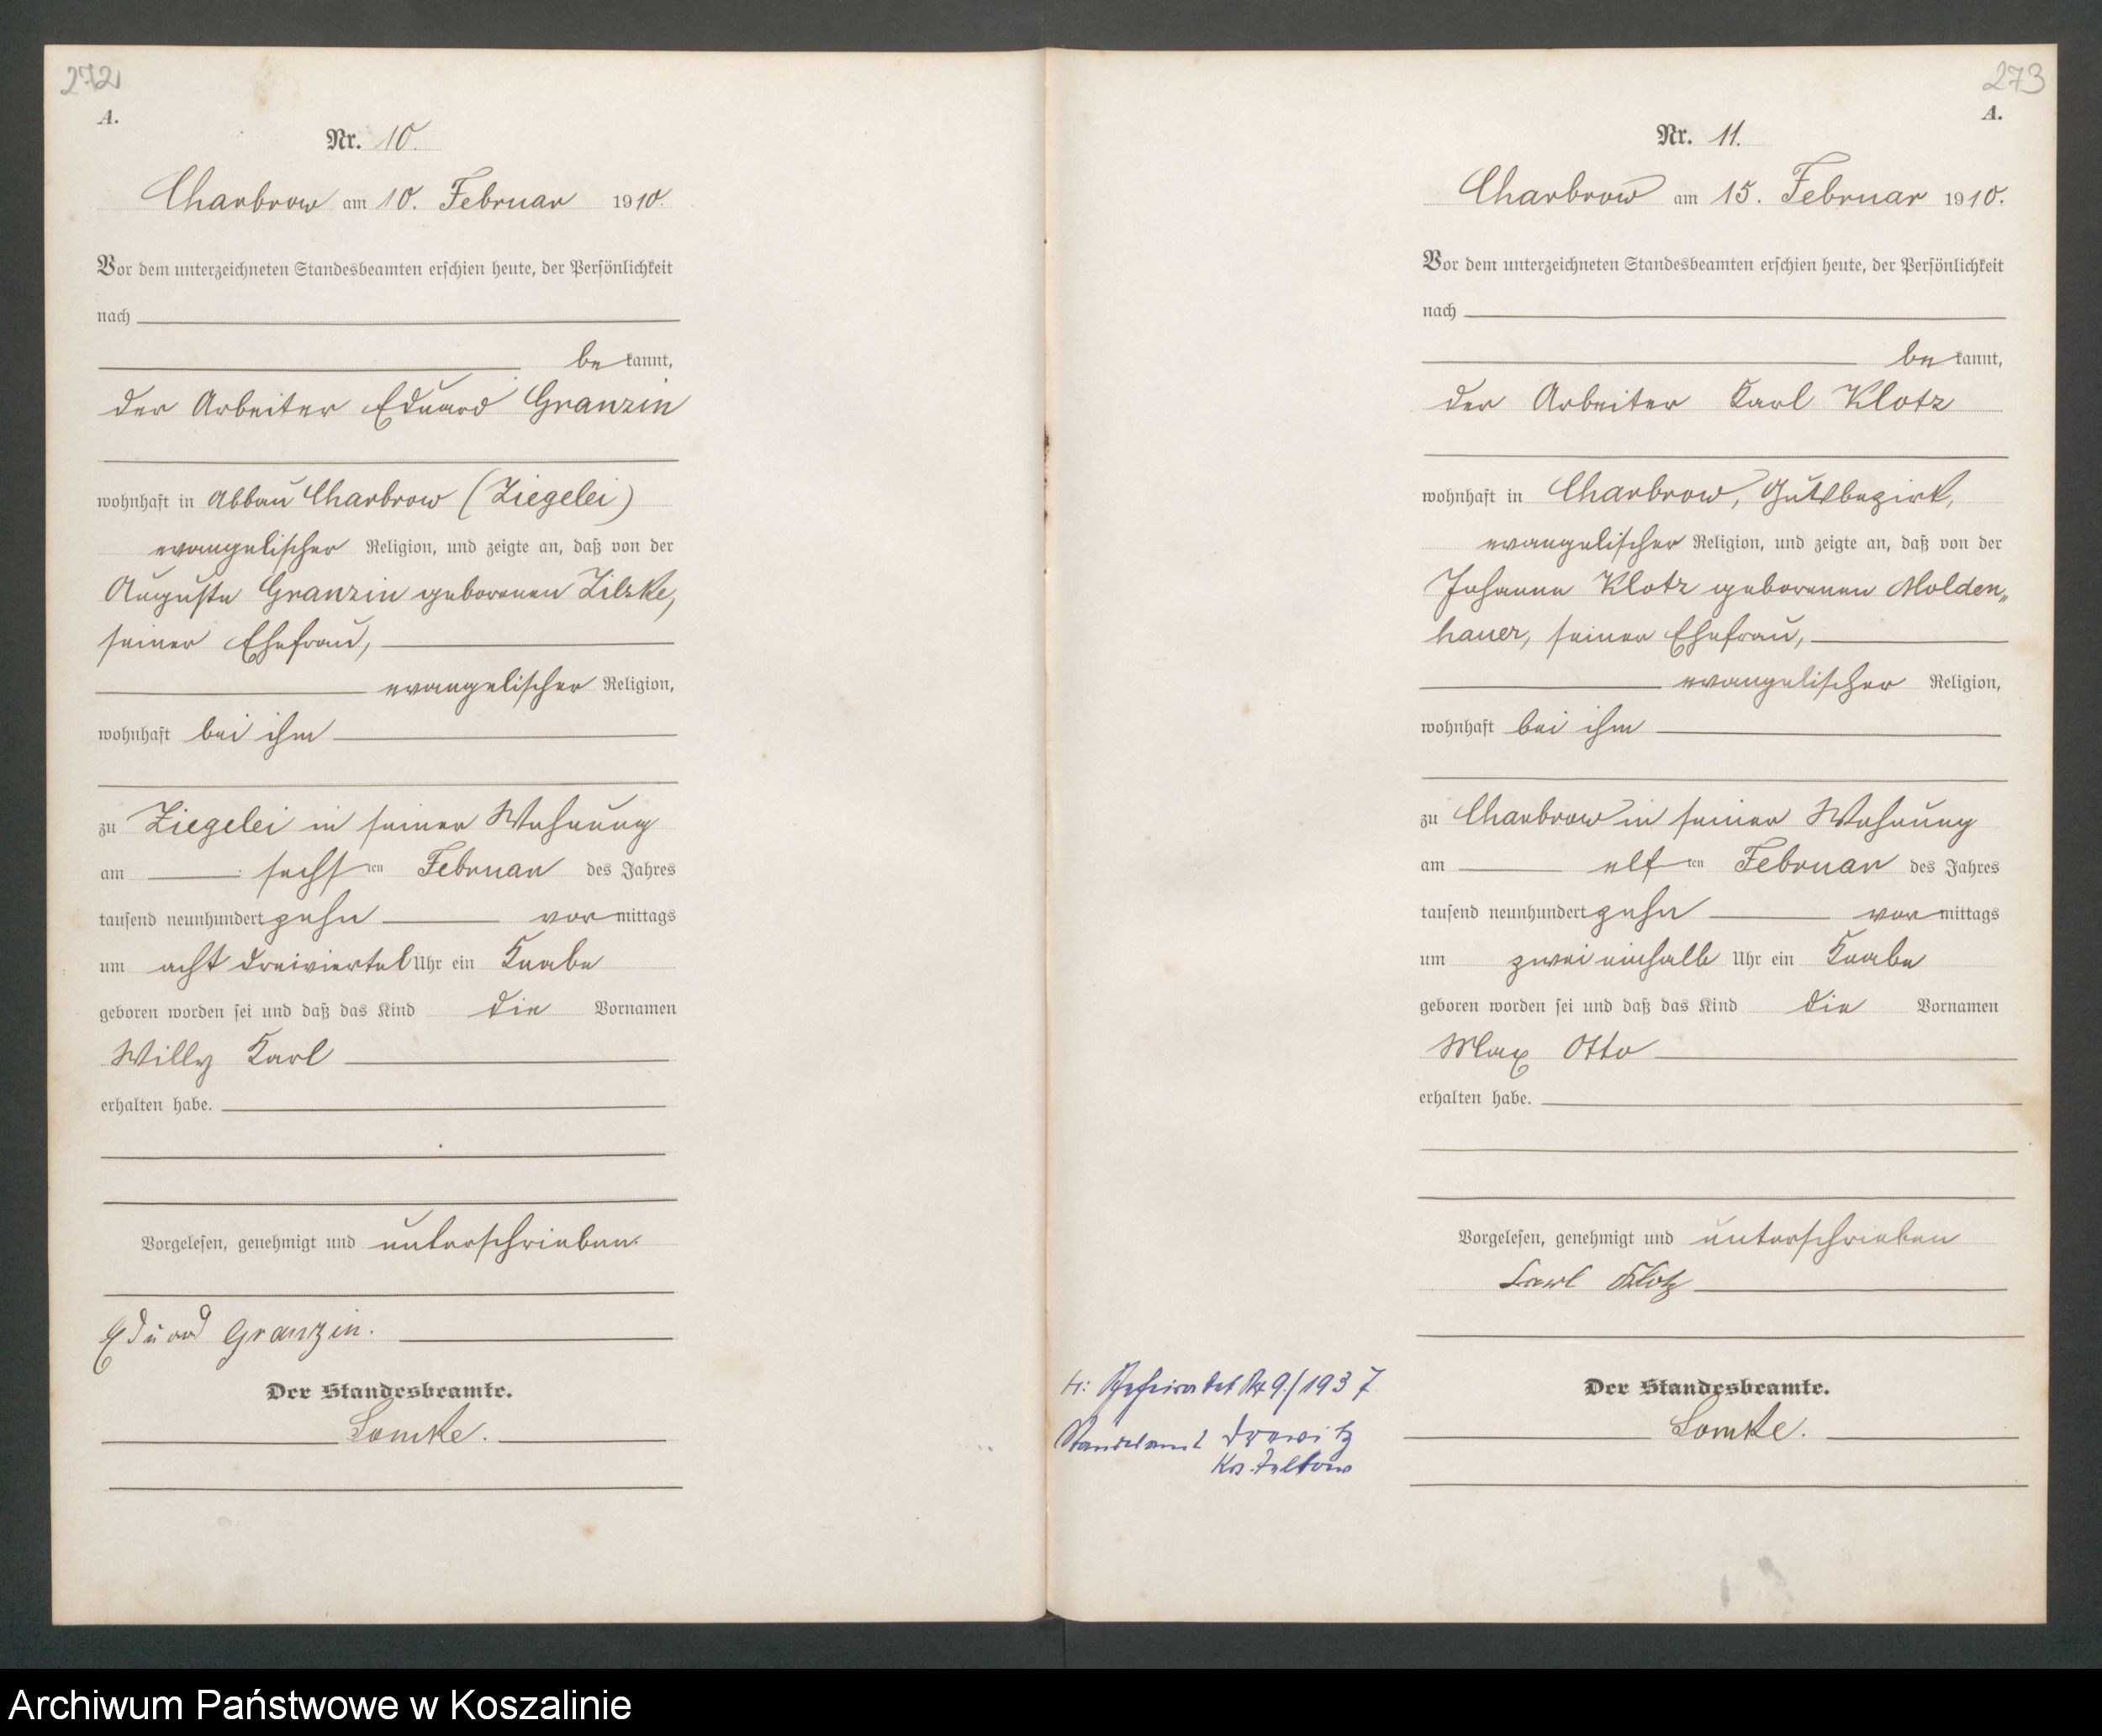 272
A.
Nr. 10.
Charbrow am 10. Februar 1910.
Vor dem unterzeichneten Standesbeamten erschien heute, der Persönlichkeit
nach
bekannt,
der Arbeiter Eduard Granzin
wohnhaft in Abbau Charbrow (Ziegelei)
evangelischer Religion, und zeigte an, daß von der
Auguste Granzin geborenen Zilske,
seiner Ehefrau,
evangelischer Religion,
wohnhaft bei ihm
zu Ziegelei in seiner Wohnung
am sechsten Februar des Jahres
tausend neunhundert zehn vormittags
um acht dreiviertel Uhr ein Knabe
geboren worden sei und daß das Kind die Vornamen
Willy Karl
erhalten habe.
Vorgelesen, genehmigt und unterschrieben.
Eduard Granzin.
Der Standesbeamte.
Lomke.
273
A.
Nr. 11.
Charbrow am 15. Februar 1910.
Vor dem unterzeichneten Standesbeamten erschien heute, der Persönlichkeit
nach
bekannt,
der Arbeiter Karl Klotz
wohnhaft in Charbrow, Gutsbezirk,
evangelischer Religion, und zeigte an, daß von der
Johanne Klotz geborenen Molden„
hauer, seiner Ehefrau,
evangelischer Religion,
wohnhaft bei ihm
zu Charbrow in seiner Wohnung
am elften Februar des Jahres
tausend neunhundert zehn vormittags
um zwei einhalb Uhr ein Knabe
geboren worden sei und daß das Kind die Vornamen
Max Otto
erhalten habe.
Vorgelesen, genehmigt und unterschrieben
Karl Klotz
Der Standesbeamte.
Lomke.
Geheiratet Nr 9/1937
Standesamt Drewitz
Krs. Teltow
Archiwum Państwowe w Koszalinie